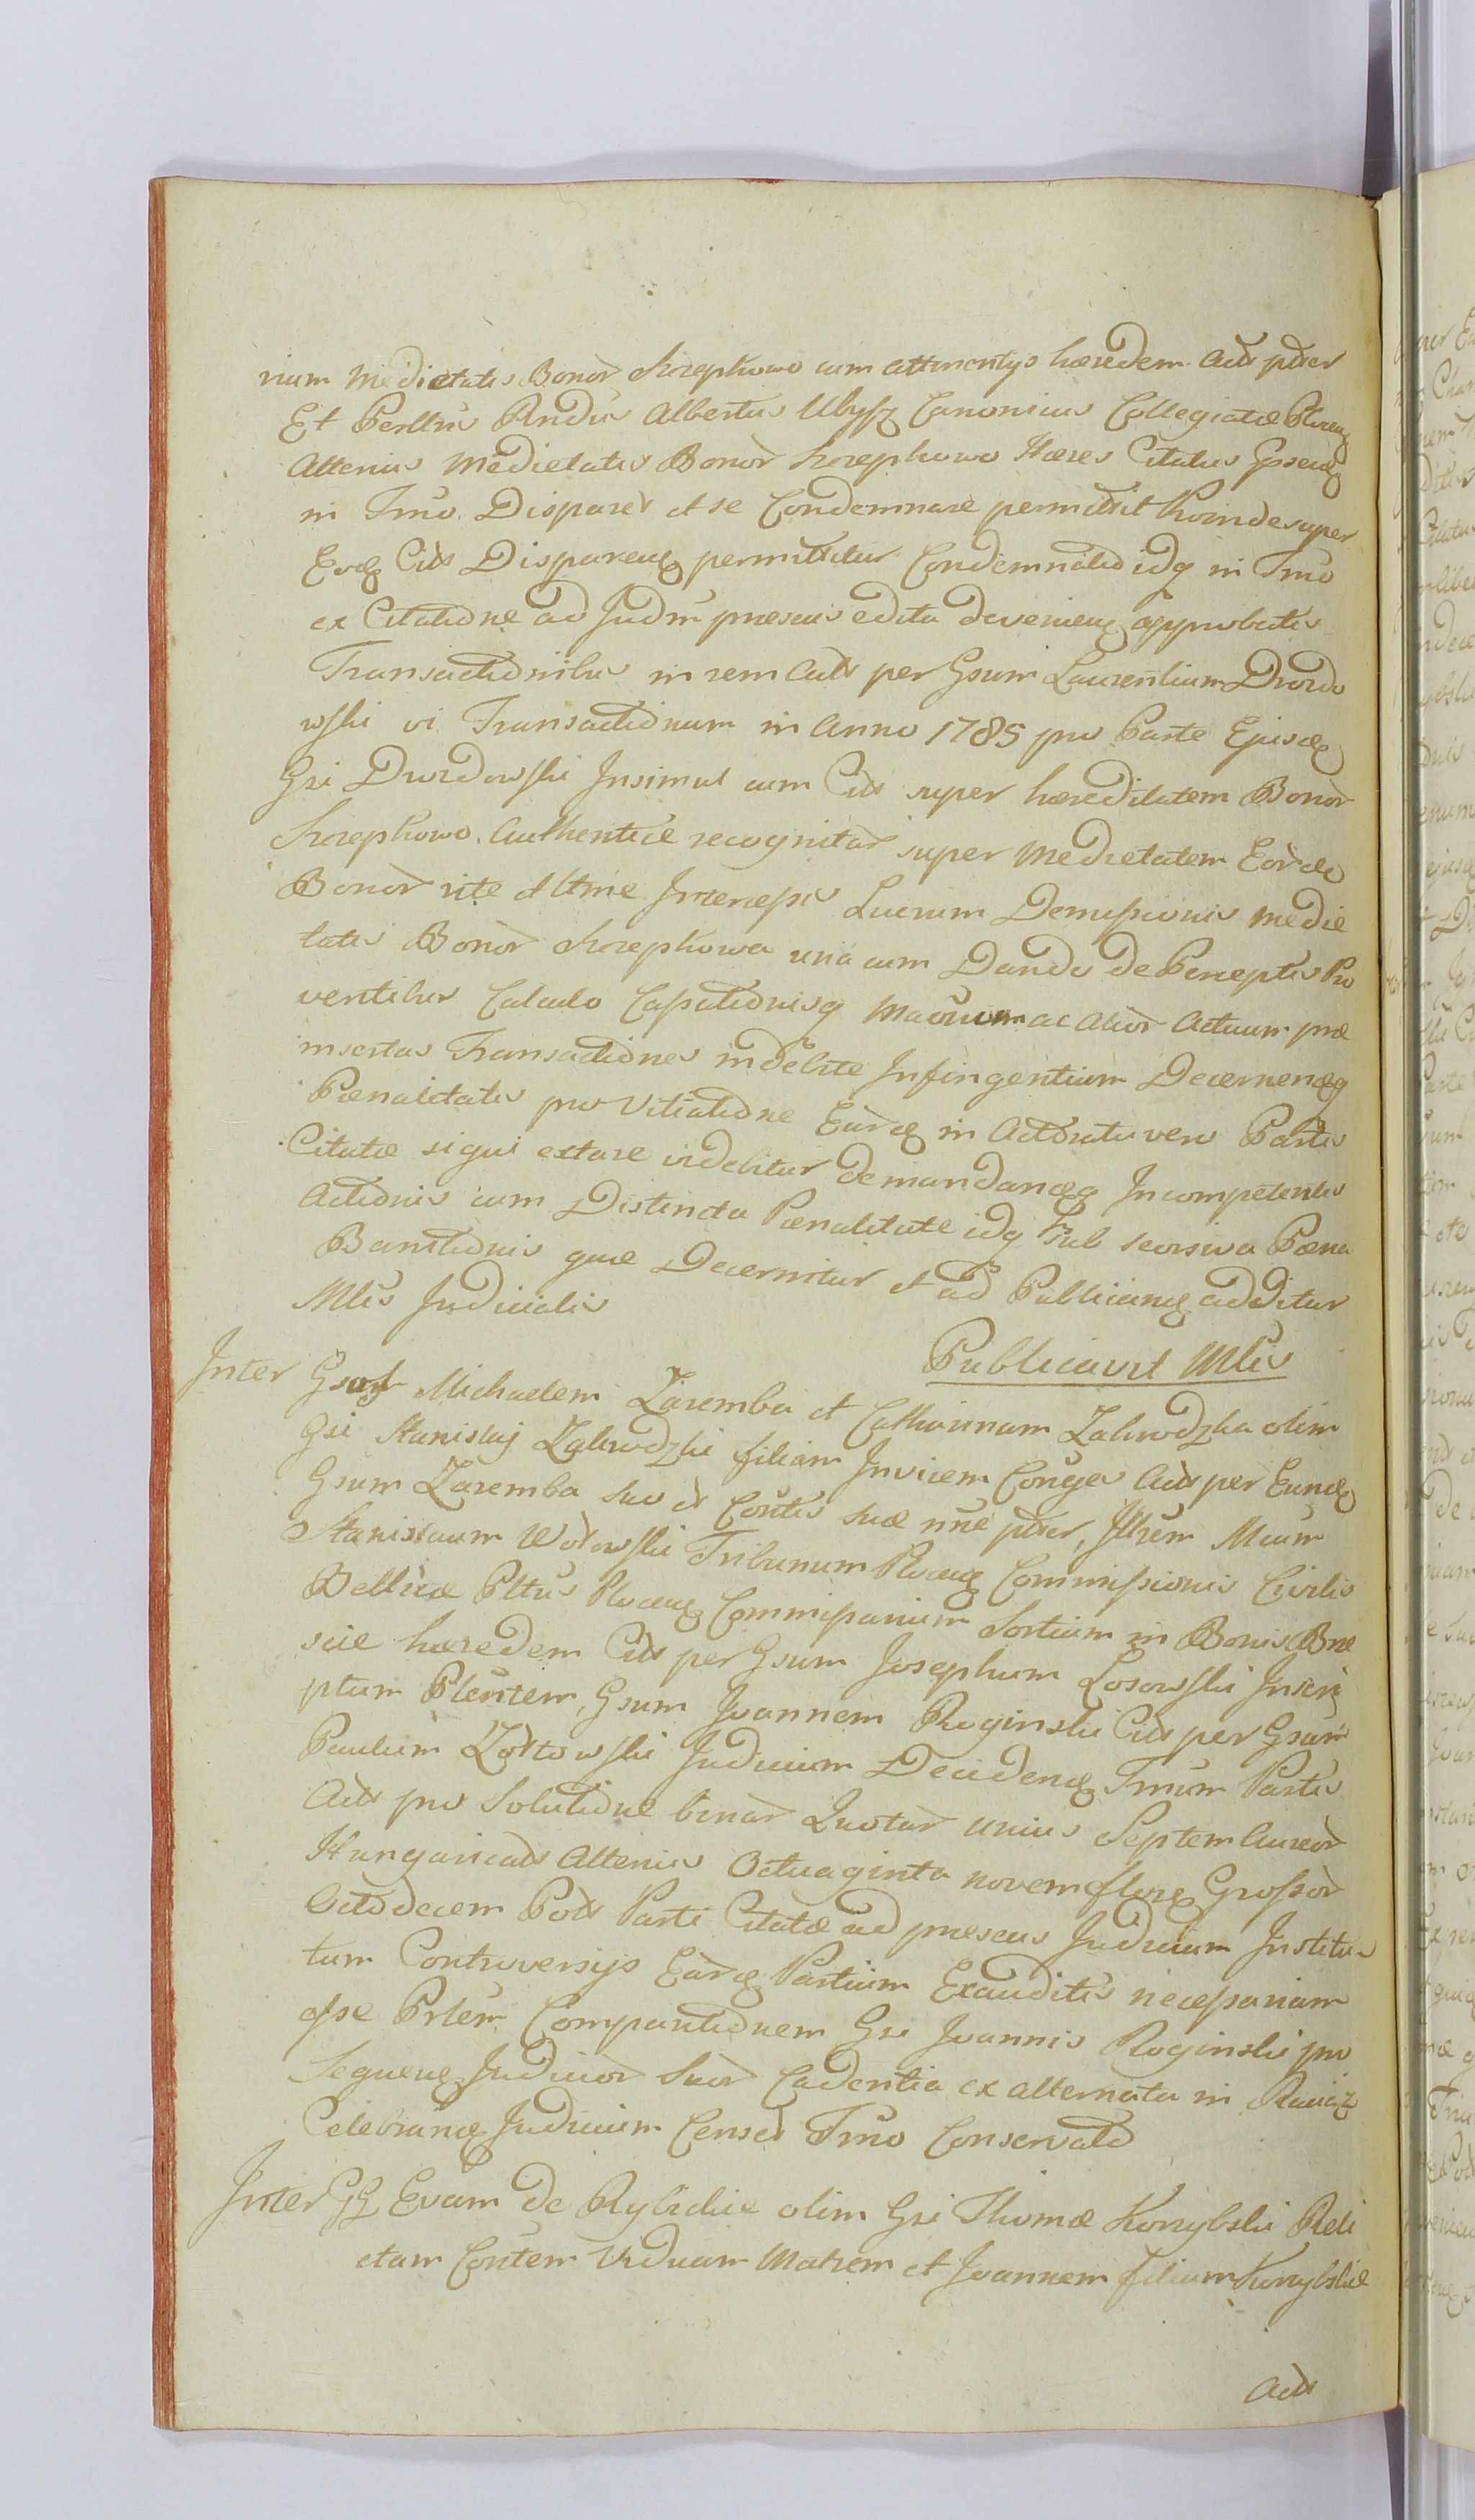 rium Medietatis Bonor Krzepkowo cum attinentijs hæredem Acts ptser
Et Perllris Rndus Albertus Ulysz Canonicus Collegiatæ Plocen
Alterius Medietatis Bonor Krzepkowo Hæres Citatus
in Tmo. Disparet et se Condemnare permittit Proinde super
Eod Cits Disparen permittitur Condemnatio idq in Tmo
ex Citatione ad Judm præsens edita devenien approbatis
Transactionibus in rem Acts per Gsum Laurentium Drozdo
wski vi Transactionum in Anno 1785 pro Parte Ejusd
Gsi Drozdowski Insimul cum Cits super hæreditatem Bonor
Krzepkowo Authentice recognitar super Medietatem Eorde
Bonor rite et ltme Lucrum Demissionis Medie
tatis Bonor Krzepkowa una cum Dando de Perceptis Pro
ventibus Calculo Cassationisq ac Alior Actuum præ
insertas Transactiones indebite Infingentium Decernend
Pœnalitatis pro Vitiatione Eard in Actoratu vero Partis
Citatæ siqui extare videbitur demandand Incompetentis
Actionis cum Distincta Pœnalitate idq sub seorsiva Pœna
Banitionis quæ Decernitur et ad Publicand additur
Mlis Judicialis
Publicavit Mlis
Inter Gsos Michaelem Zaremba et Catharinam Zakrodzka olim
Gsi Stanislaj Zakrodzki filiam Invicem Conges Acts per Eund
Gsum Zaremba suo et Contis suæ nne ptser, Illrem Mcum
Stanislaum Wołowski Tribunum Rvaen Commissionis Civilis
Bellicæ Pltus Plocen Commissarium Sortium in Bonis
scie hæredem Cits per Gsum Josephum Losowski Inscri
ptum Plentem, Gsum Joannem Roginski Cits per Gsum
Paulum Zółtowski Judicium Deciden Tmum Partis
Acts pro Solutione binar Quotar unius Septem Aureor
Hungaricals Alterius Octuaginta novem flor Grossor
Octodecem Pols Parti Citatæ ad præsens Judicium Institu
tum Controversijs Eard Partium Exauditis necessariam
esse Prlem Comparitionem Gsi Joannis Roginski pro
Sequen Judicior suor Cadentia ex alternata in Raciąz
Celebrand Judicium Censet Tmo Conservato
Inter GG Evam de Rybickie olim Gsi Thomæ Korzybski Reli
ctam Contem Viduam Matrem et Joannem filium Korzybskie
Acts